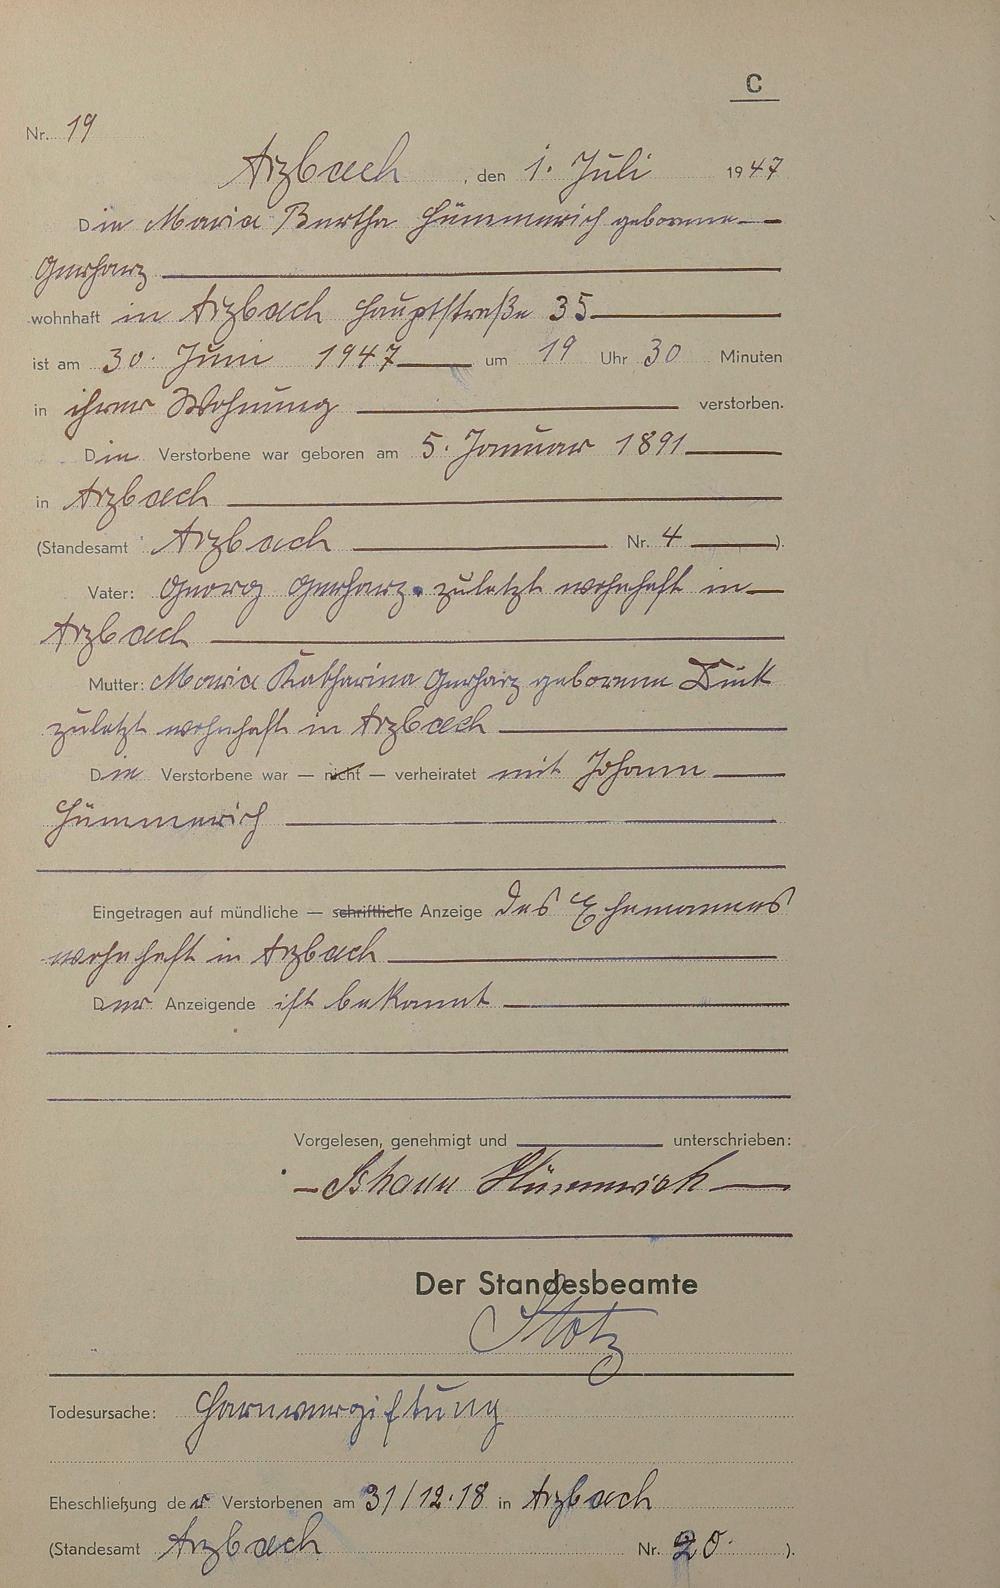 C
Nr. 19
Arzbach, den 1. Juli 1947
Die Maria Bertha Hümmerich geborene
Gerharz
wohnhaft in Arzbach Hauptstraße 35
ist am 30. Juni 1947 um 19 Uhr 30 Minuten
in ihrer Wohnung verstorben.
Die Verstorbene war geboren am 5. Januar 1891
in Arzbach
(Standesamt Arzbach Nr. 4 ).
Vater: Georg Gerharz. zuletzt wohnhaft in
Arzbach
Mutter: Maria Katharina Gerharz geborene
zuletzt wohnhaft in Arzbach
Die Verstorbene war — nicht — verheiratet mit Johann
Hümmerich
Eingetragen auf mündliche — schriftliche Anzeige des Ehemannes
wohnhaft in Arzbach
Der Anzeigende ist bekannt
Vorgelesen, genehmigt und unterschrieben:
Johann Hümmerich
Der Standesbeamte
Stotz
Todesursache: Harnvergiftung
Eheschließung der Verstorbenen am 31/12.18 in Arzbach
(Standesamt Arzbach Nr. 20. ).